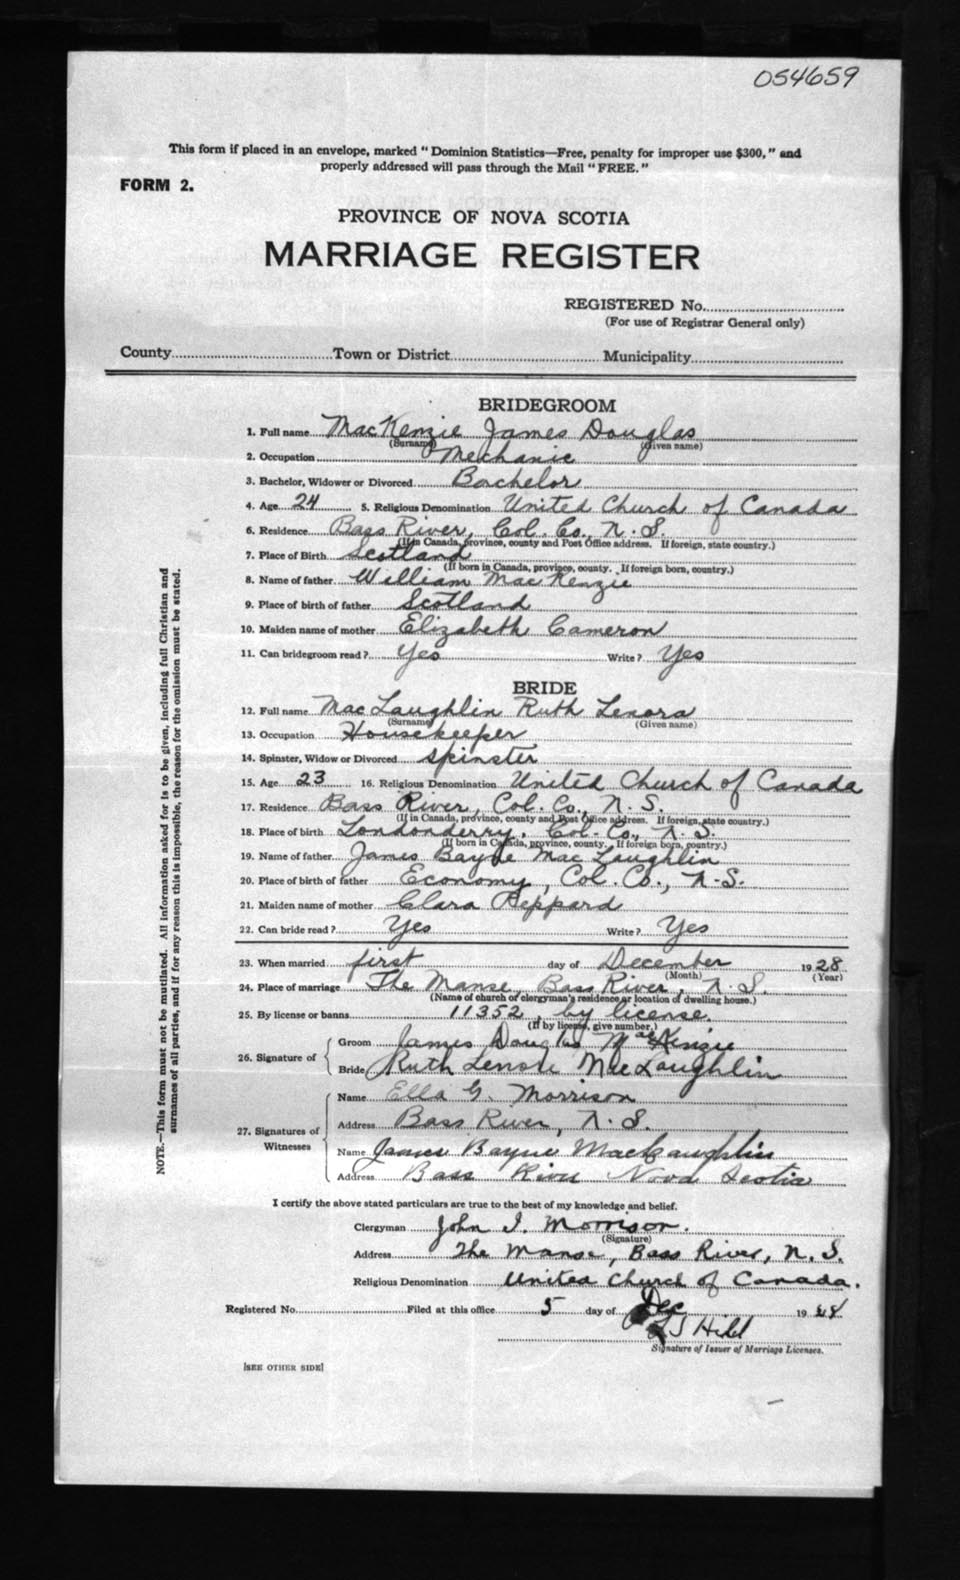 054659
This form if placed in an envelope, marked "Dominion Statistics—Free, penalty for improper use $300," and
properly addressed will pass through the Mail "FREE."
FORM 2.
PROVINCE OF NOVA SCOTIA
MARRIAGE REGISTER
REGISTERED No.
(For use of Registrar General only)
County Town or District Municipality
BRIDEGROOM
1. Full name MacKenzie James Douglas
(Surname) (Given name)
2. Occupation Mechanic
3. Bachelor, Widower or Divorced Bachelor
4. Age 24 5. Religious Denomination United Church of Canada
6. Residence Bass River, Col. Co., N. S.
(If in Canada, province, county and Post Office address. If foreign, state country.)
7. Place of Birth Scotland
(If born in Canada, province, county. If foreign born, country.)
8. Name of father William MacKenzie
9. Place of birth of father Scotland
10. Maiden name of mother Elizabeth Cameron
11. Can bridegroom read? Yes Write? Yes
BRIDE
12. Full name MacLaughlin Ruth Lenora
(Surname) (Given name)
13. Occupation Housekeeper
14. Spinster, Widow or Divorced Spinster
15. Age 23 16. Religious Denomination United Church of Canada
17. Residence Bass River, Col. Co., N. S.
(If in Canada, province, county and Post Office address. If foreign, state country.)
18. Place of birth Londonderry, Col. Co., N. S.
(If born in Canada, province, county. If foreign born, country.)
19. Name of father James Bayne MacLaughlin
20. Place of birth of father Economy, Col. Co., N.S.
21. Maiden name of mother Clara Reppard
22. Can bride read? Yes Write? Yes
23. When married first day of December 1928
(Month) (Year)
24. Place of marriage The Manse, Bass River, N. S.
(Name of church or clergyman's residence or location of dwelling house.)
25. By license or banns 11352, by license.
(If by license, give number.)
26. Signature of
Groom James Douglas MacKenzie
Bride Ruth Lenore MacLaughlin
27. Signatures of Witnesses
Name Ella G. Morrison
Address Bass River, N. S.
Name James Bayne MacLaughlin
Address Bass River Nova Scotia
I certify the above stated particulars are true to the best of my knowledge and belief.
Clergyman John I. Morrison.
(Signature)
Address The Manse, Bass River, N. S.
Religious Denomination United Church of Canada.
Registered No. Filed at this office 5 day of Dec 19
Hill
Signature of Issuer of Marriage Licenses.
[SEE OTHER SIDE]
NOTE.—This form must not be mutilated. All information asked for is to be given, including full Christian and
surnames of all parties, and if for any reason this is impossible, the reason for the omission must be stated.